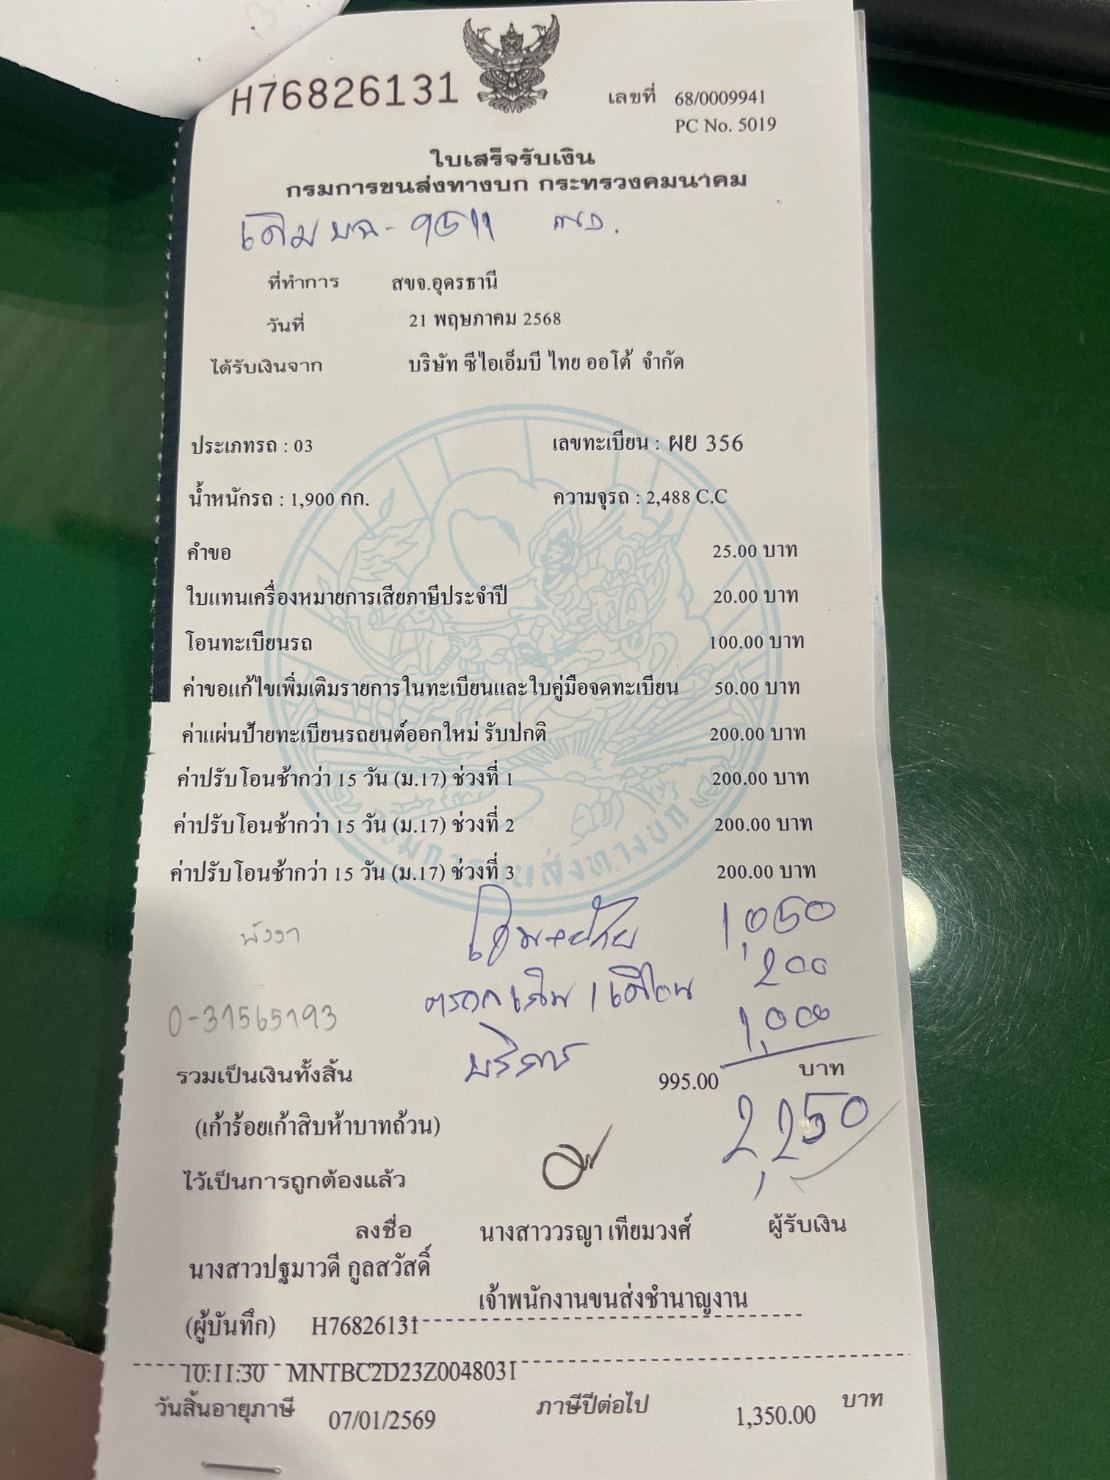 H76826131
เลขที่ 68/0009941
PC No. 5019
ใบเสร็จรับเงิน
กรมการขนส่งทางบก กระทรวงคมนาคม
เดิม
ที่ทำการ สขจ.อุดรธานี
วันที่ 21 พฤษภาคม 2568
ได้รับเงินจาก บริษัท ซีไอเอ็มบี ไทย ออโต้ จำกัด
ประเภทรถ : 03 เลขทะเบียน : ผย 356
น้ำหนักรถ : 1,900 กก. ความจุรถ : 2,488 C.C
คำขอ 25.00 บาท
ใบแทนเครื่องหมายการเสียภาษีประจำปี 20.00 บาท
โอนทะเบียนรถ 100.00 บาท
ค่าขอแก้ไขเพิ่มเติมรายการในทะเบียนและใบคู่มือจดทะเบียน 50.00 บาท
ค่าแผ่นป้ายทะเบียนรถยนต์ออกใหม่ รับปกติ 200.00 บาท
ค่าปรับโอนช้ากว่า 15 วัน (ม.17) ช่วงที่ 1 200.00 บาท
ค่าปรับโอนช้ากว่า 15 วัน (ม.17) ช่วงที่ 2 200.00 บาท
ค่าปรับโอนช้ากว่า 15 วัน (ม.17) ช่วงที่ 3 200.00 บาท
กรมการขนส่งทางบก
พังงา 1,050
200
0-31565193 1,000
บริการ
รวมเป็นเงินทั้งสิ้น 995.00 บาท
(เก้าร้อยเก้าสิบห้าบาทถ้วน) 2,250
ไว้เป็นการถูกต้องแล้ว
ลงชื่อ นางสาววรญา เทียมวงศ์ ผู้รับเงิน
นางสาวปฐมาวดี กูลสวัสดิ์
เจ้าพนักงานขนส่งชำนาญงาน
(ผู้บันทึก) H76826131
10:11:30 MNTBC2D23Z0048031
วันสิ้นอายุภาษี 07/01/2569 ภาษีปีต่อไป 1,350.00 บาท